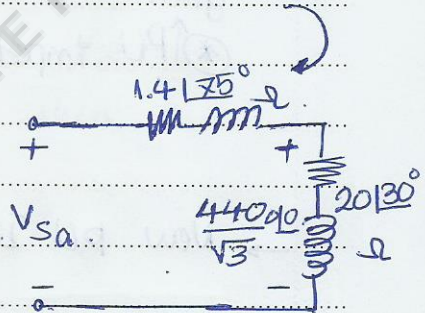 1.4∠75° Ω
+ +
V_Sa
440/√3 ∠0°
20∠30° Ω
- -